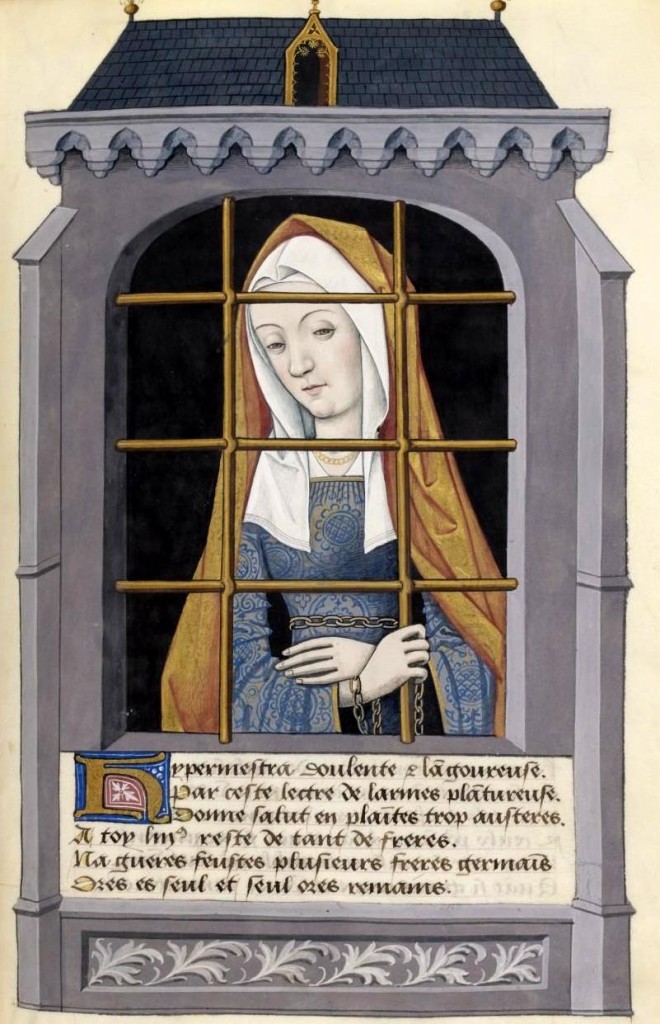 Hypermestra doulente & lãgoureuse.
Par ceste lectre de larmes plãtureuse.
Donne salut en plaītes trop austeres.
A toy luyꝰ reste de tant de freres.
Na gueres feustes plusieurs freres germaīs
Ores es seul et seul ores remains.